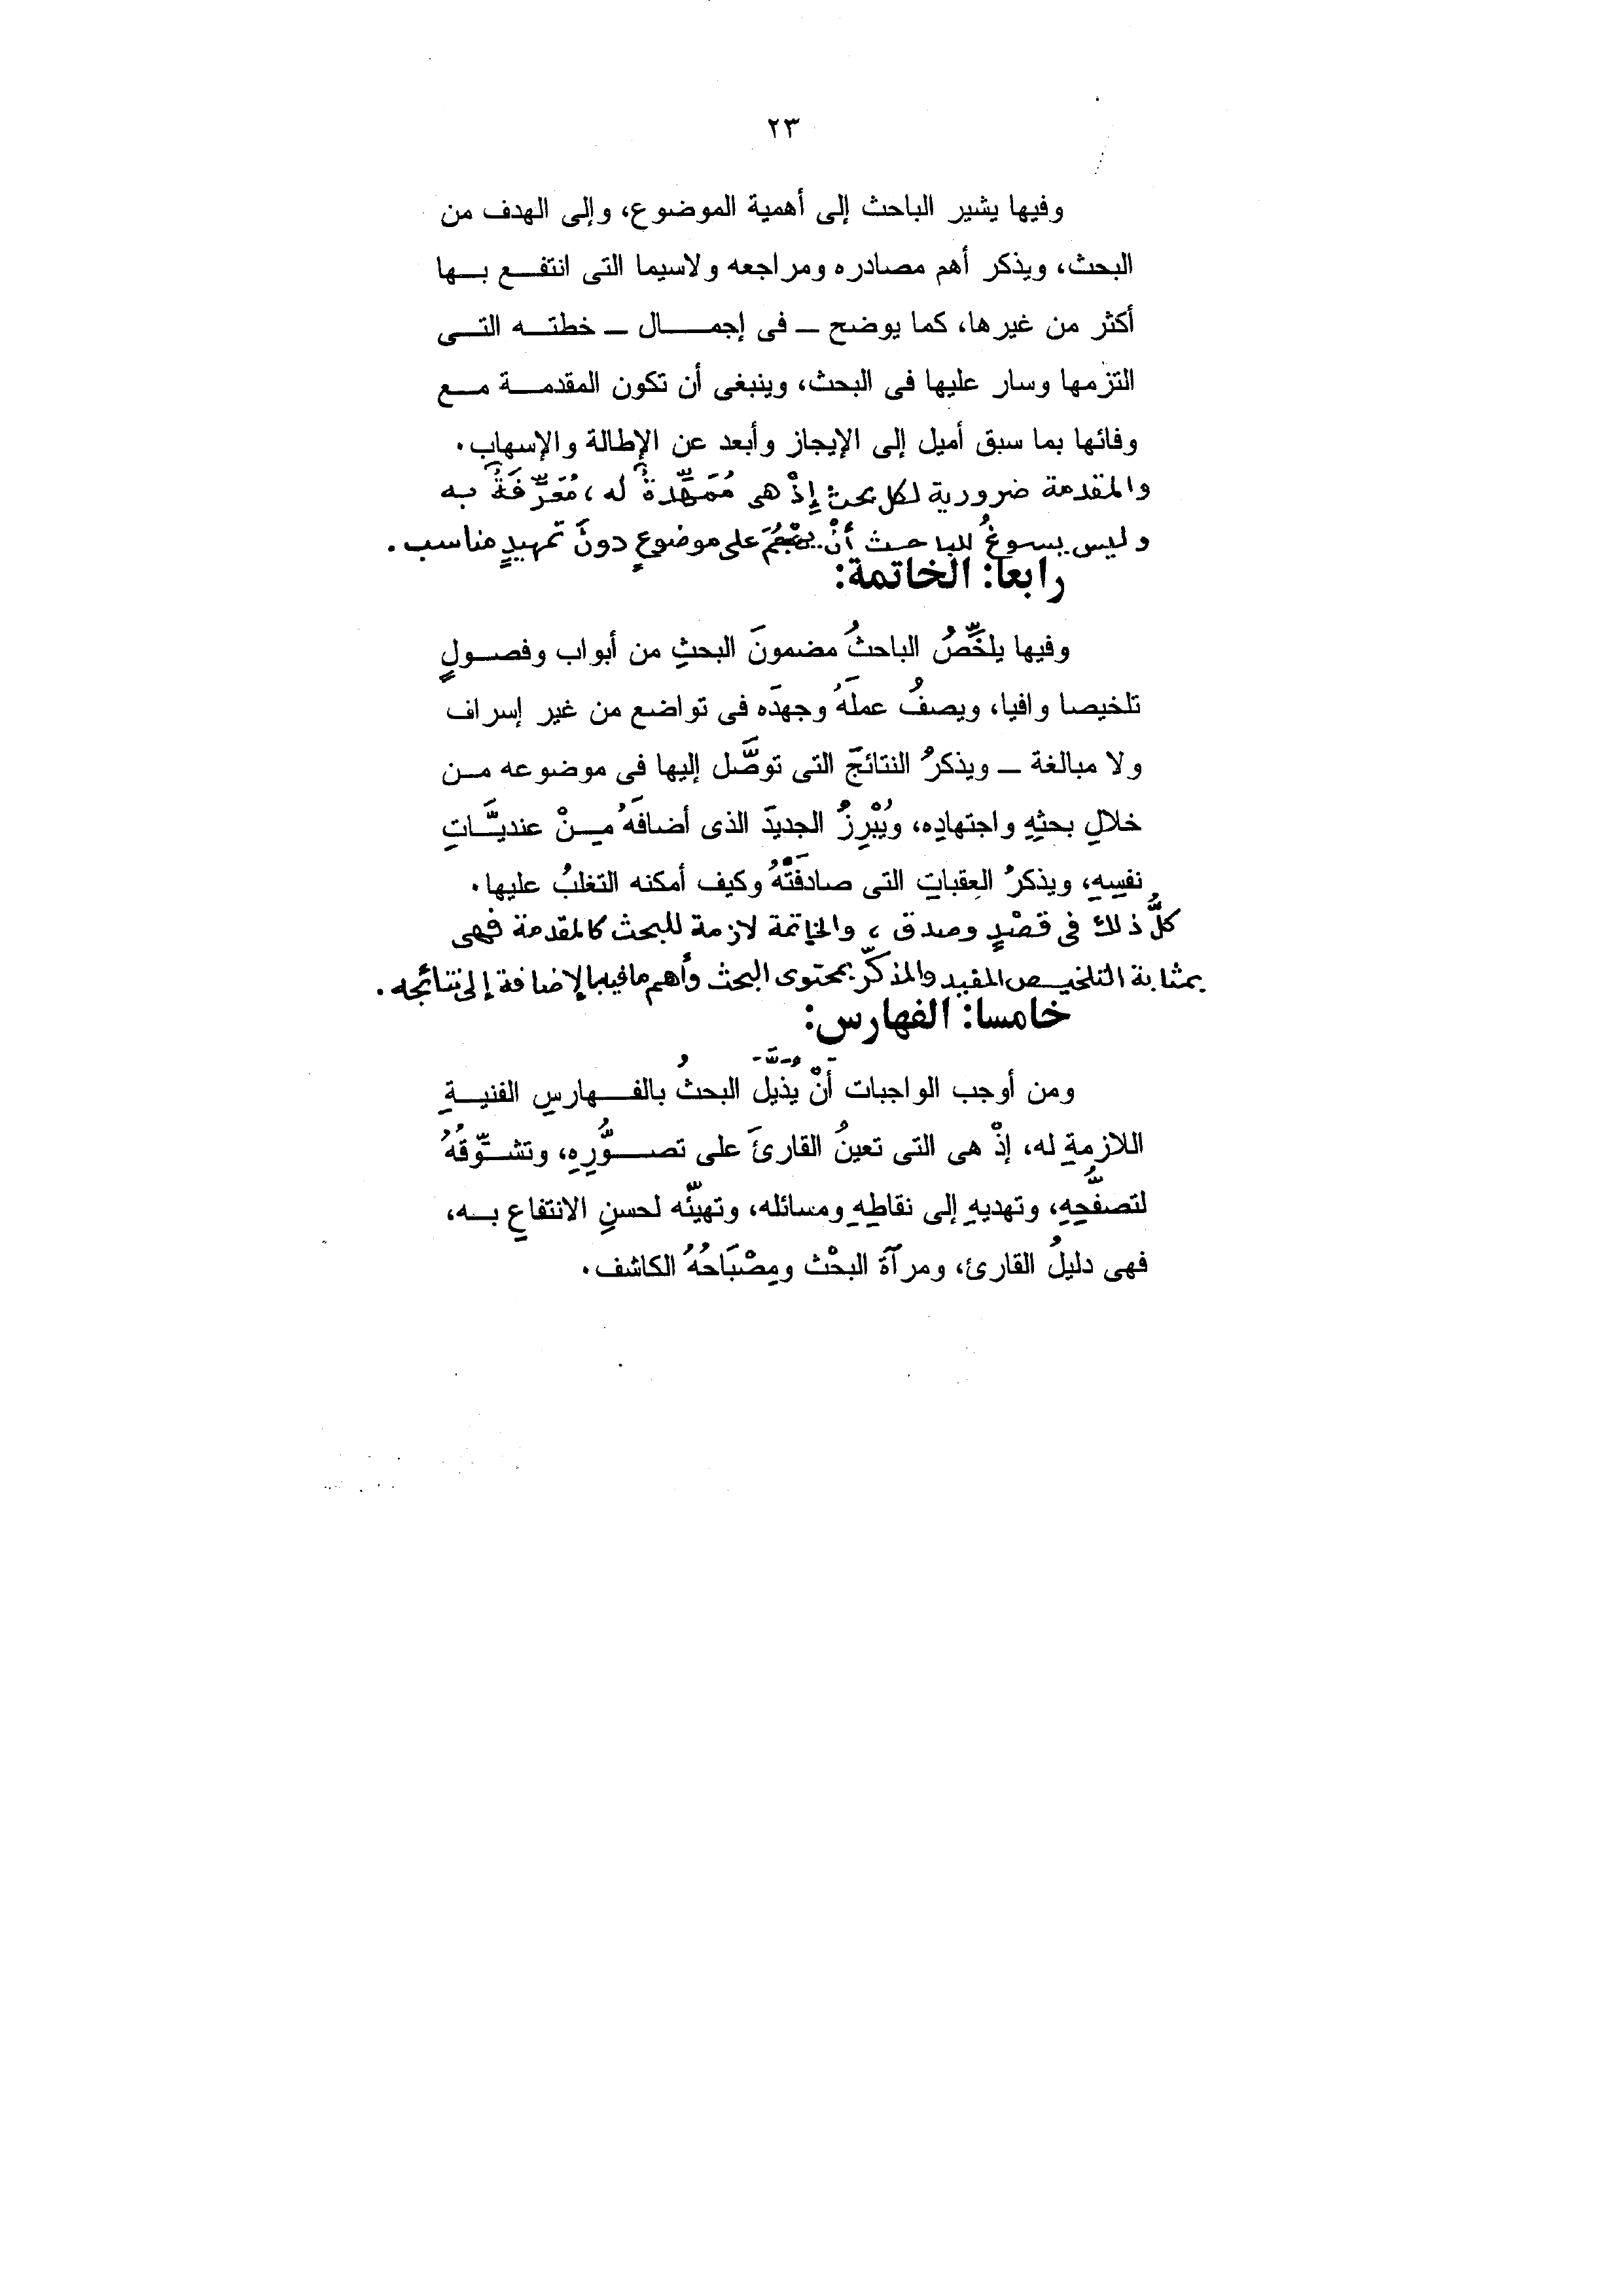 ٢٣
وفيها يشير الباحث إلى أهمية الموضوع، وإلى الهدف من
البحث، ويذكر أهم مصادره ومراجعه ولاسيما التى انتفع بها
أكثر من غيرها، كما يوضح – فى إجمال – خطته التى
التزمها وسار عليها فى البحث، وينبغى أن تكون المقدمة مع
وفائها بما سبق أميل إلى الإيجاز وأبعد عن الإطالة والإسهاب.
والمقدمة ضرورية لكل بحث إذْ هى مُمَهِّدةٌ له، مُعَرِّفَةٌ به
وليس يسوغُ للباحث أنْ يهْجُمَ على موضوعٍ دونَ تمهيدٍ مناسب.
رابعا: الخاتمة:
وفيها يلخِّصُ الباحثُ مضمونَ البحثِ من أبواب وفصولٍ
تلخيصا وافيا، ويصفُ عملَهُ وجهدَه فى تواضع من غير إسراف
ولا مبالغة – ويذكرُ النتائجَ التى توصَّل إليها فى موضوعه من
خلالِ بحثِهِ واجتهادِه، ويُبْرِزُ الجديدَ الذى أضافَهُ مِنْ عنديَّاتِ
نفسِهِ، ويذكرُ العِقباتِ التى صادفَتْهُ وكيف أمكنه التغلبُ عليها.
كلُّ ذلك فى قصْدٍ وصدق، والخاتمة لازمة للبحث كالمقدمة فهى
بمثابة التلخيص المفيد والمذكِّر بمحتوى البحث وأهم مافيه بالإضافة إلى نتائجه.
خامسا: الفهارس:
ومن أوجب الواجبات أنْ يُذَيَّلَ البحثُ بالفهارسِ الفنيةِ
اللازمةِ له، إذْ هى التى تعينُ القارئَ على تصوُّرِهِ، وتشوِّقُهُ
لتصفُّحِهِ، وتهديهِ إلى نقاطِهِ ومسائله، وتهيّئه لحسنِ الانتفاعِ به،
فهى دليلُ القارئ، ومرآة البحْث ومِصْبَاحُهُ الكاشف.